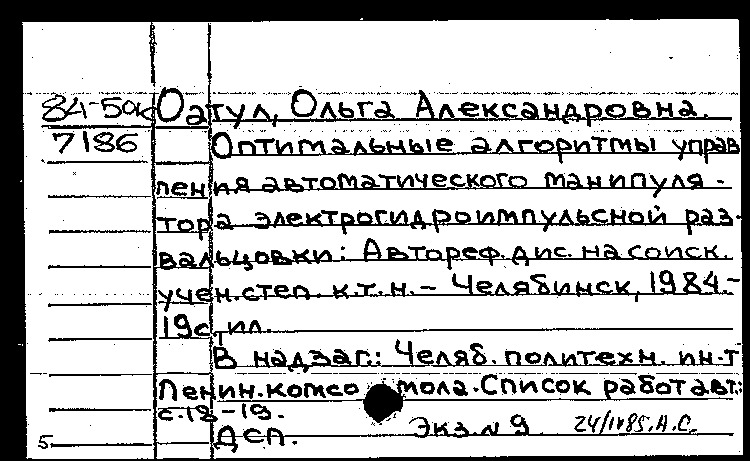 84-50к Оатул, Ольга Александровна.
7186 Оптимальные алгоритмы управ
ления автоматического манипуля-
тора электрогидроимпульсной раз-
вальцовки: Автореф. дис. на соиск.
учен. степ. к.т.н. - Челябинск, 1984. -
19с ил.
В надзаг.: Челяб. политехн. ин-т
Ленин. комсомола. Список работ авт.:
с. 18-19.
5 ДСП. Экз. № 9 24/IV85. А.С.